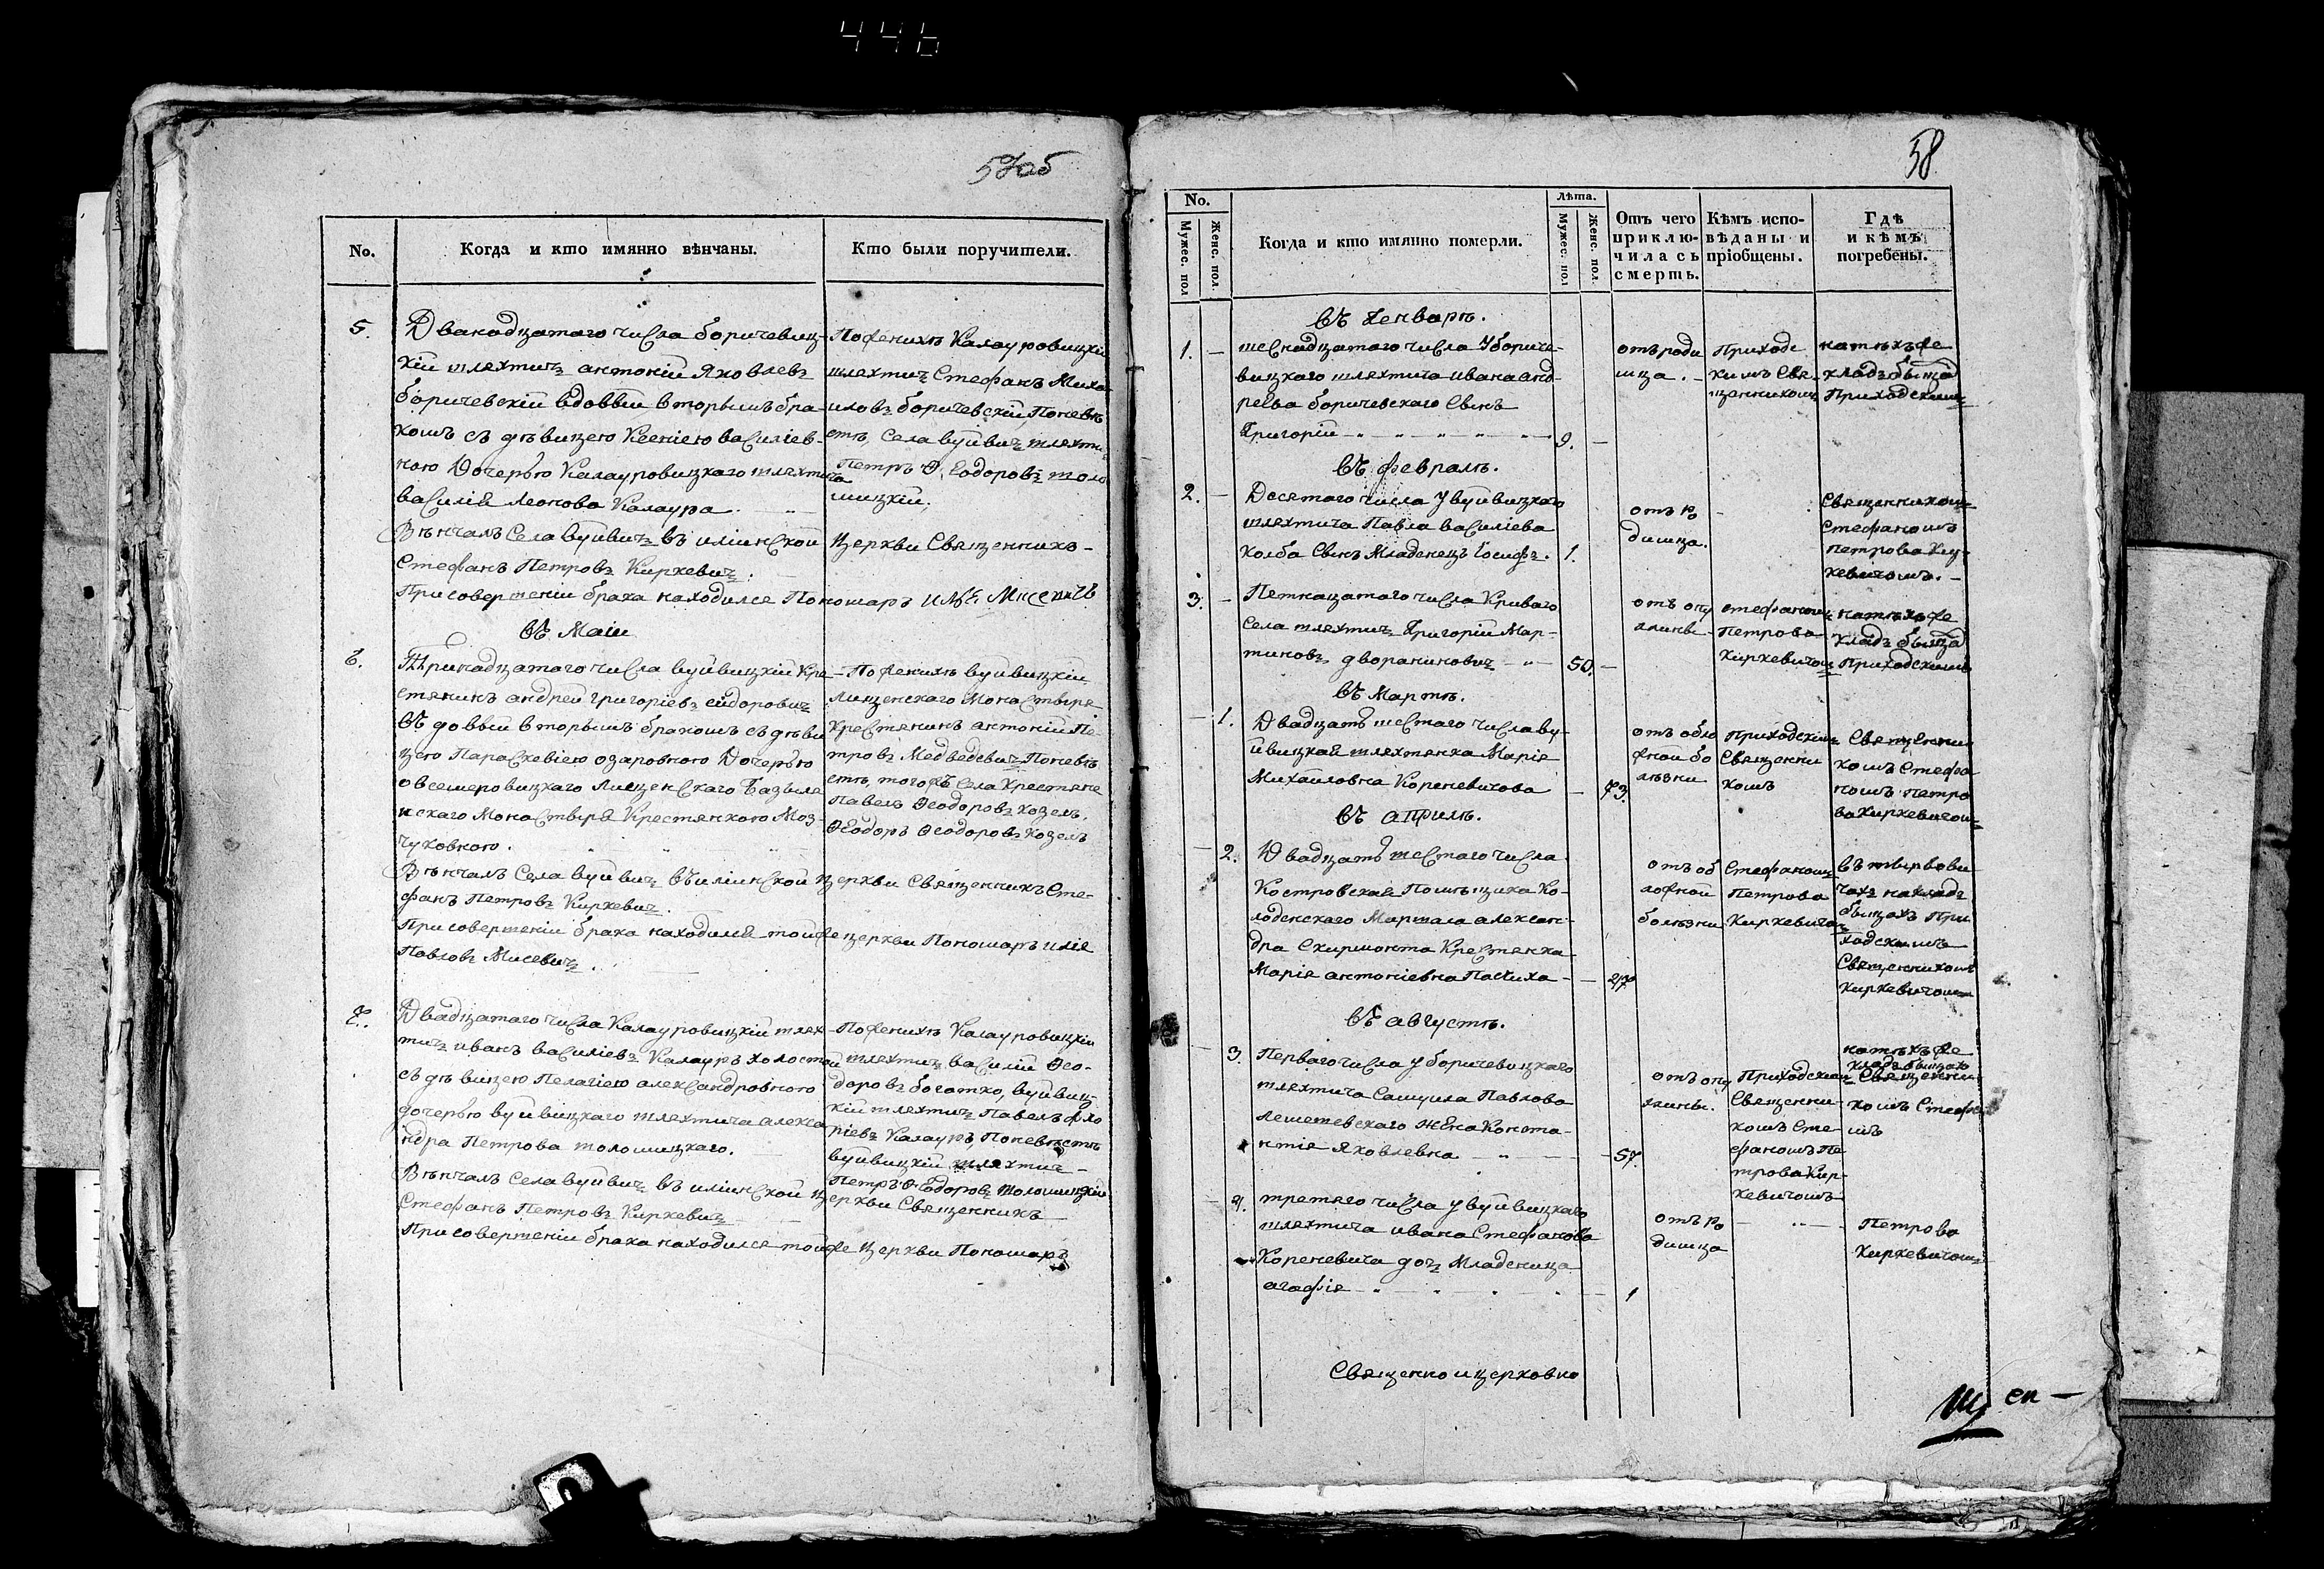 446
57об
No.
Когда и кто имянно вѣнчаны.
Кто были поручители.
5.
Дванадцатаго числа боричевиц-
кій шляхтичъ антоній Яковлевъ
боричевскій вдоввій вторымъ бра-
комъ съ дѣвицею Ксеніею василіев-
ною Дочерью Калауровицкаго шляхтича
василія Леонова Калаура.
Вѣнчалъ Села вуйвичъ въ иліинской церкви Священникъ
Стефанъ Петровъ Киркевичъ.
При совершеніи брака находился Пономарь Илья Мисевичъ
По женихѣ Калауровицкій
шляхтичъ Стефанъ Миха
иловъ боричевскій, По невѣ
стѣ, села вуйвичъ шляхти
Петръ Ѳеодоровъ толо
мицкій.
Въ Маіи
6.
Тринадцатаго числа вуйвицкій Кре
стянинъ андрей григоріевъ сидоровичъ
вдоввій вторымъ бракомъ съ дѣви
цею Параскевіею озаровною Дочерью
овсемеровицкаго Лищенскаго Базыліа
нскаго Монастыря Крестянкою Моз-
чуковною.
Вѣнчалъ Села вуйвичъ въ иліинской церкви Священникъ Сте-
фанъ Петровъ Киркевичъ.
При совершеніи брака находился тойже церкви Пономарь илія
Павловъ Мисевичъ.
По женихѣ вуйвицкій
Лищенскаго Монастыря
Крестянинъ антоній Пе
тровъ Медведевичъ По невѣ
стѣ, того жъ Села Крестяне
Павелъ Ѳеодоровъ козелъ.
Ѳеодоръ Ѳеодоровъ козелъ
7.
Двадцатаго числа Калауровицкій шлях
тичъ иванъ василіевъ Калауръ холостой
съ дѣвицею Пелагіею александровною
дочерью вуйвицкаго шляхтича алекса
ндра Петрова толомицкаго.
Вѣнчалъ Села вуйвичъ въ иліинской церкви Священникъ
Стефанъ Петровъ Киркевичъ
При совершеніи брака находился тойже церкви Пономарь
По женихѣ Калауровицкій
шляхтичъ василій Ѳео-
доровъ богатко, вуйвиц-
кій шляхтичъ Павелъ
Калауръ, По невѣстѣ
вуйвицкій шляхтичъ
Петръ Ѳеодоровъ толомицкій
58
No.
Мужес. пол
Женс. пол.
Когда и кто имянно померли.
Лѣта.
Мужес. пол
Женс. пол
Отъ чего
приклю-
чилась
смерть.
Кѣмъ испо-
вѣданы и
пріобщены.
Гдѣ
и кѣмъ
погребены.
Въ Генварѣ.
1.
шеснадцатаго числа У бориче-
вицкаго шляхтича ивана анд-
реева боричевскаго Сынъ
Григорій
9.
отъ роди
мца.
Приходс
кимъ Свя
щенникомъ
на тѣхъ же
кладбыща
Приходскимъ
Въ февралѣ.
2.
Десятаго числа У вуйвицкаго
шляхтича Павла василіева
колба Сынъ Младенецъ Іосифъ.
1.
отъ ро
димца.
Священникомъ
Стефаномъ
Петрова Кир
кевичомъ.
3.
Петнацатаго числа Криваго
Села шляхтичъ Григорій Мар-
тиновъ двораниновичъ
50.
отъ опу
хлины
Стефаномъ
Петрова
Киркевичомъ
на тѣхъ же
кладбыща
Приходскимъ
Въ Мартѣ.
1.
Двадцать шестаго числа ву-
йвицкая шляхтянка Марія
Михайловна Кореневичова
73.
отъ обло
жной бо
лѣзни
Приходскимъ
Священни
комъ
Священни
комъ Стефа
номъ Петро
ва Киркевичомъ
Въ априлѣ.
2.
Двадцать шестаго числа
Костровская Помѣщика Ко-
лоденскаго Маршала алексан-
дра Скирмонта Крестянка
Марія антоніевна Пашиха
47
отъ об
ложной
болѣзни
Стефаномъ
Петрова
Киркевичомъ
на кладъ
быщахъ При
ходскимъ
Священникомъ
Киркевичомъ
Въ августѣ.
3.
Перваго числа у боричевицкаго
шляхтича Самуила Павлова
Лемешевскаго жена Конста-
нтія Яковлевна
57.
отъ опу
хлины.
Приходскимъ
Священни-
комъ Сте-
фаномъ Пе
трова Кир-
кевичомъ
на тѣхъ же
кладбыщахъ
Священни
комъ Стефано
мъ
4.
третяго числа у вуйвицкаго
шляхтича ивана Стефанова
Кореневича дочъ Младеница
агафія
1
отъ ро
димца
Петрова
Киркевичомъ
Священно и церковно